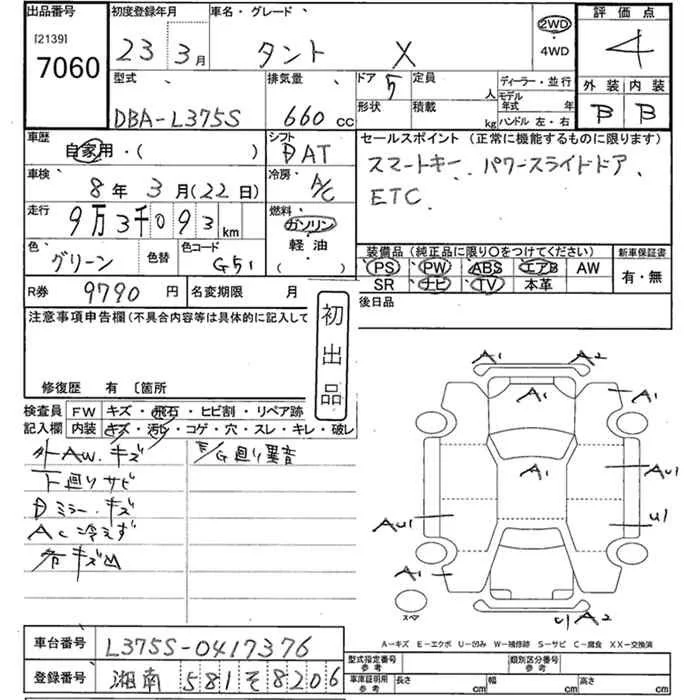 出品番号
[2139]
7060
初度登録年月
23年3月
車名・グレード
タント X
2WD
・
4WD
評価点
4
外装 内装
B B
型式
DBA-L375S
排気量
660 cc
ドア 5
形状
定員 人
積載 kg
ディーラー・並行
モデル年式 年
ハンドル 左・右
車歴
自家用・( )
シフト
DAT
車検
8年3月(22日)
冷房
A/C
走行
9万3千093km
燃料
ガソリン
・
軽油
・
( )
色
グリーン
色替
色コード
G51
セールスポイント (正常に機能するものに限ります)
スマートキー、パワースライドドア、
ETC
装備品 (純正品に限り○をつけてください)
PS PW ABS エアB AW
SR ナビ TV 本革
新車保証書
有・無
R券 9790円
名変期限 月
後日品
注意事項申告欄(不具合内容等は具体的に記入して
初出品
修復歴 有 〔箇所
検査員
記入欄
FW キズ・飛石・ヒビ割・リペア跡
内装 キズ・汚レ・コゲ・穴・スレ・キレ・破レ
外AW.キズ
E/G廻り異音
下廻りサビ
Dミラー.キズ
AC冷えず
A1 A2
A1 A1
A1 AU1
AU1 U1
A1
スペア
U1 A2
A-キズ E-エクボ U-凹み W-補修跡 S-サビ C-腐食 XX-交換済
車台番号 L375S-0417376
登録番号 湘南 581 そ 8206
型式指定番号
参考
類別区分番号
参考
車庫証明用
参考
長さ cm 幅 cm 高さ cm